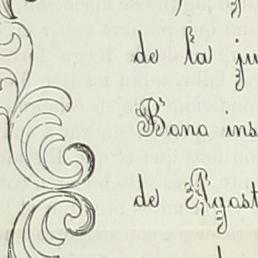 de la ju
Bona ins
de Agost